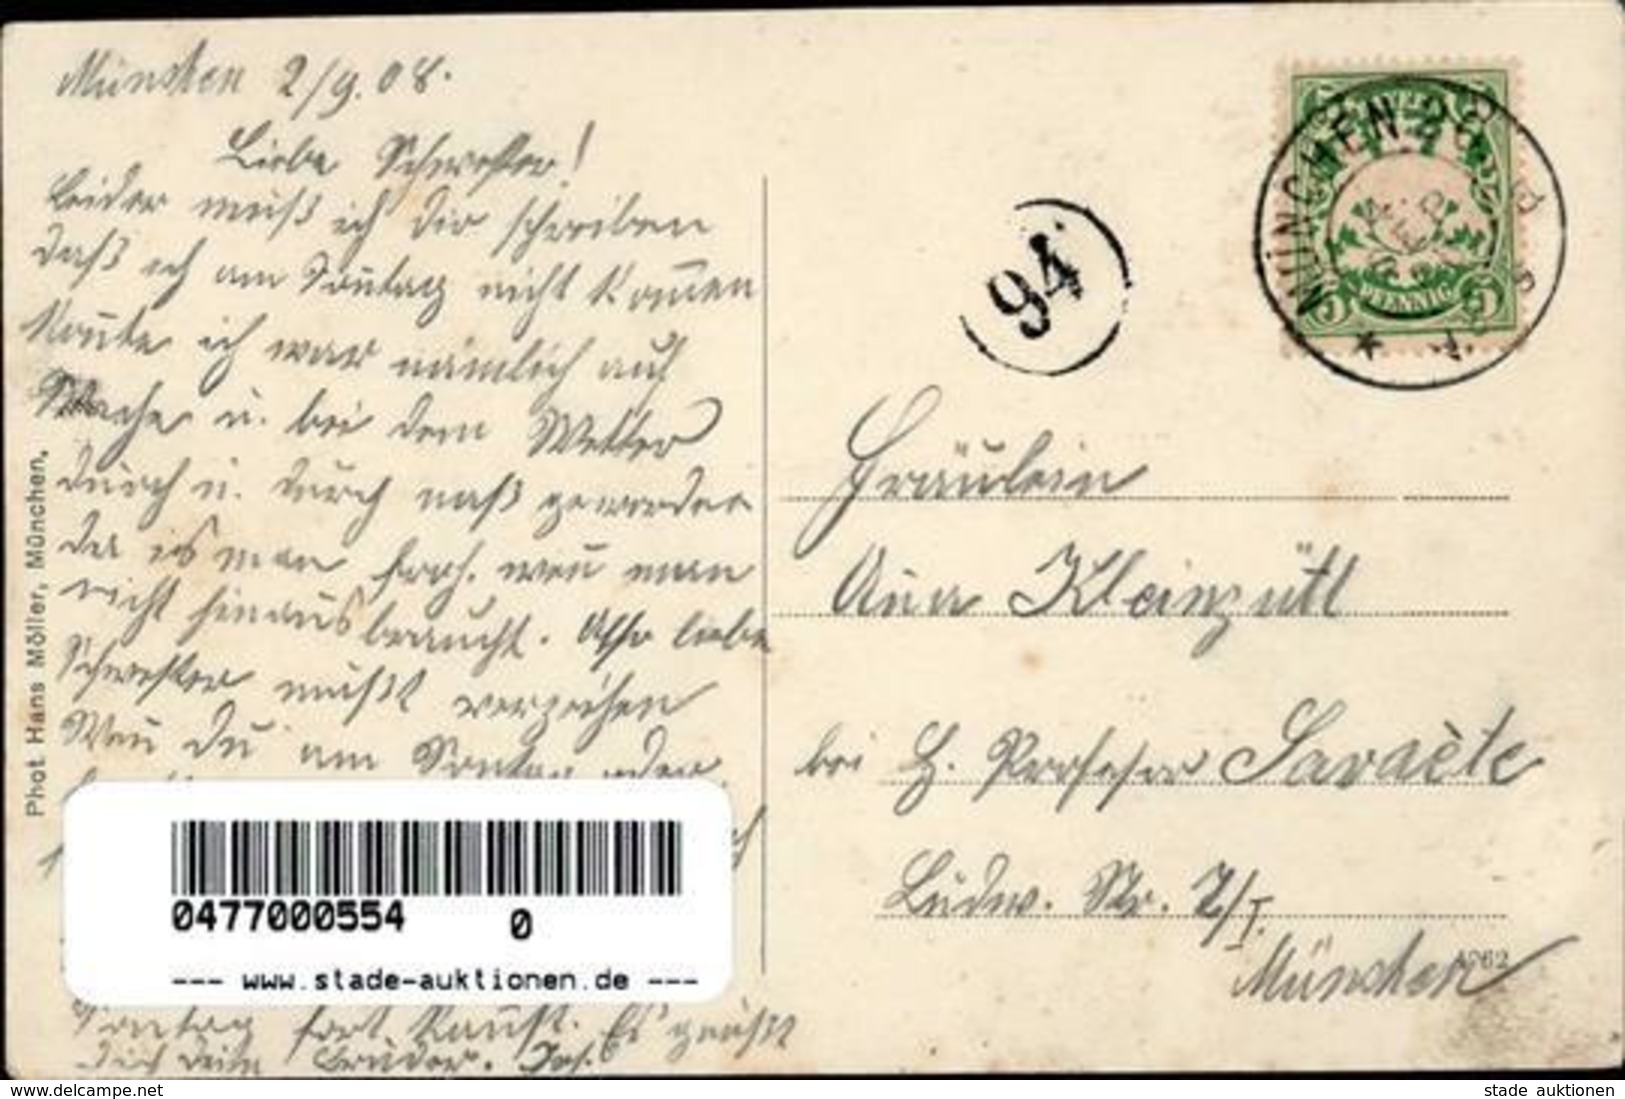 München 2/9. 08.
Liebe Schwester!
Leider muß ich dir schreiben
daß ich am Sontag nicht komen
konte ich war nämlich auf
Wache u. bei dem Wetter
durch u. durch naß geworden
da is man froh. wen man
nicht hinaus braucht. Also liebe
Schwester mußt verzeihen
Wen du am Sontag oder
Sontag fort kanst. Es grüßt
dich dein Bruder. Jos.
Phot. Hans Möller, München.
94
MÜNCHEN
PFENNIG
5 5
Fräulein
Ana Kleinzütl
bei H. Profesor Savaète
Ludw. Str. 7/I.
München
0477000554 0
--- www.stade-auktionen.de ---
www.delcampe.net
stade auktionen